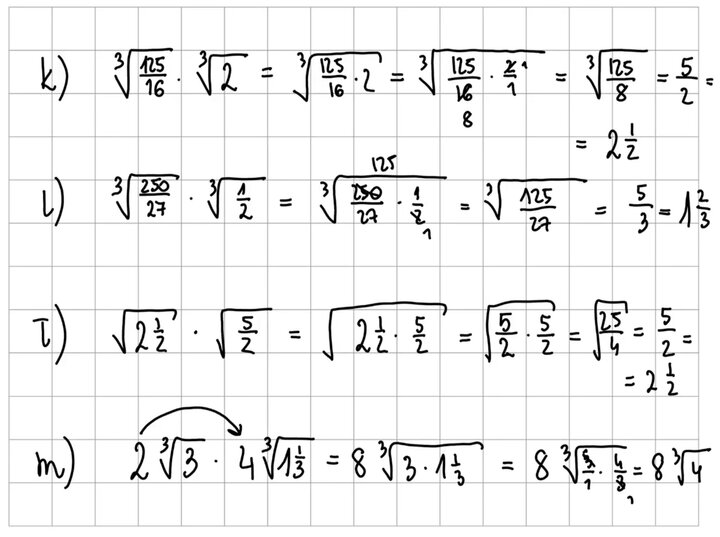 k) ∛(125/16) · ∛2 = ∛(125/16 · 2) = ∛(125/16 · 2/1) = ∛(125/8) = 5/2 =
8
= 2 1/2
125
l) ∛(250/27) · ∛(1/2) = ∛(250/27 · 1/2) = ∛(125/27) = 5/3 = 1 2/3
1
ł) √(2 1/2) · √(5/2) = √(2 1/2 · 5/2) = √(5/2 · 5/2) = √(25/4) = 5/2 =
= 2 1/2
m) 2∛3 · 4∛(1 1/3) = 8∛(3 · 1 1/3) = 8∛(3/1 · 4/3) = 8∛4